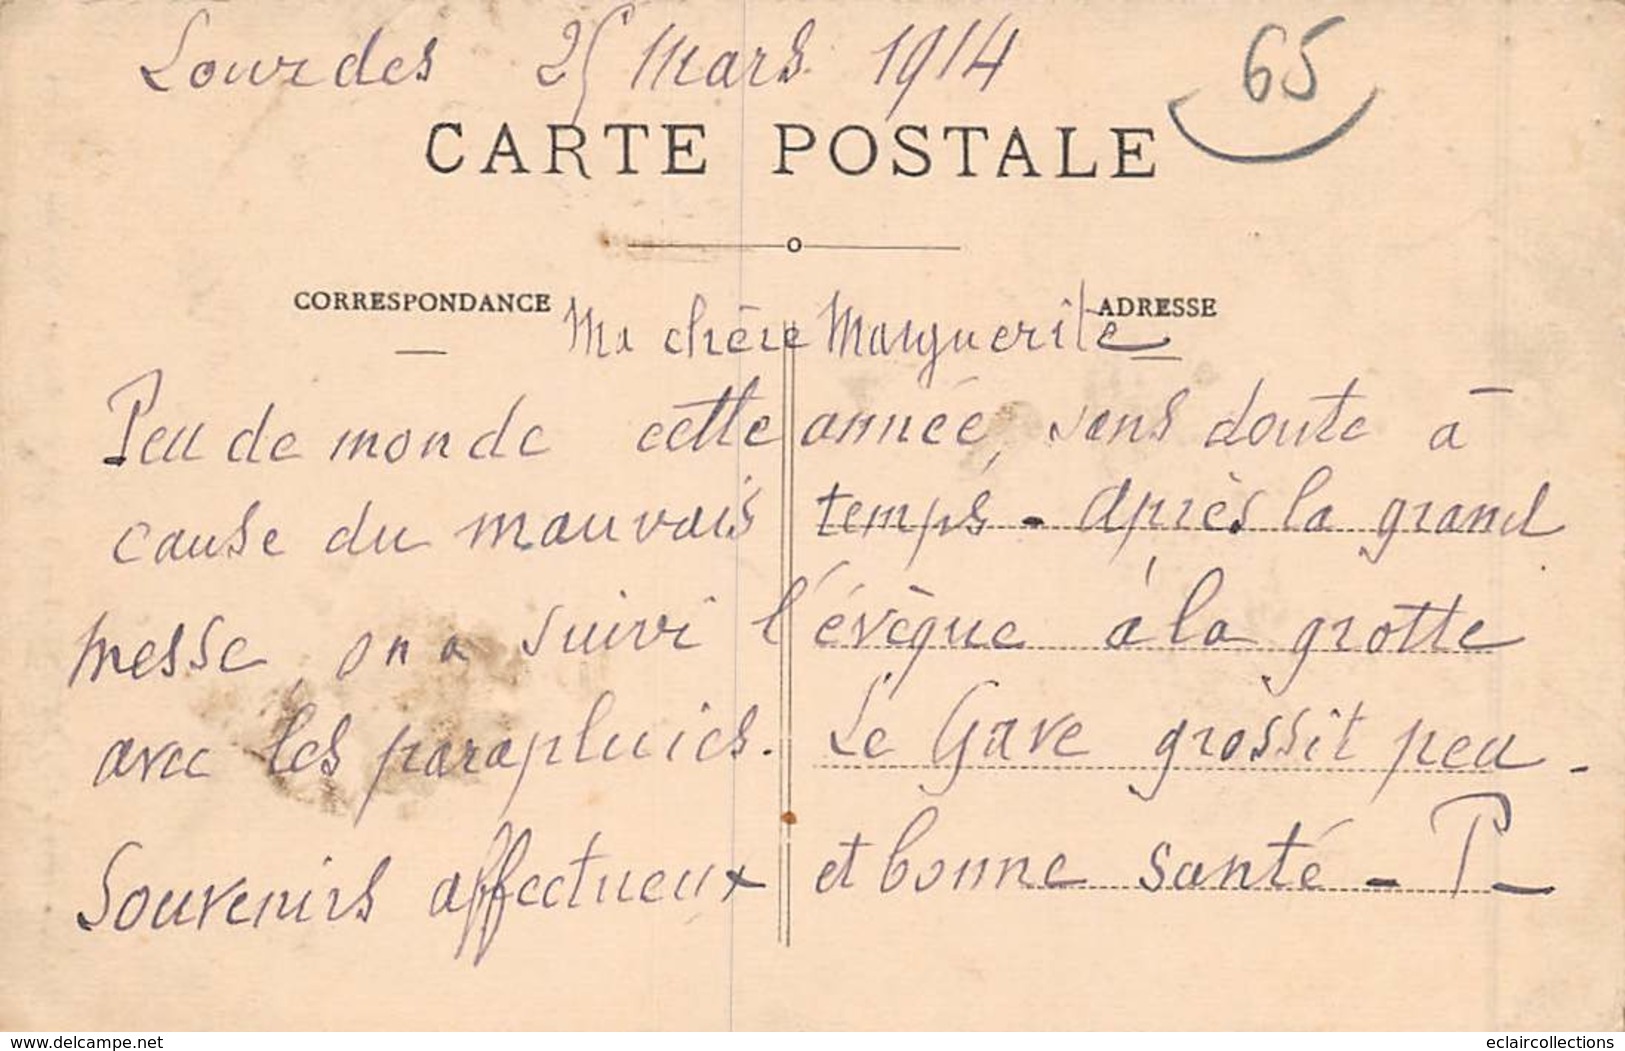 Lourdes 25 Mars 1914
65
CARTE POSTALE
CORRESPONDANCE
ADRESSE
Ma chère Marguerite
Peu de monde cette année, sans doute à
cause du mauvais temps - Après la grand
messe, on a suivi l'évêque à la grotte
avec les parapluies. Le Gave grossit peu.
Souvenirs affectueux et bonne santé - P -
www.delcampe.net
eclaircollections